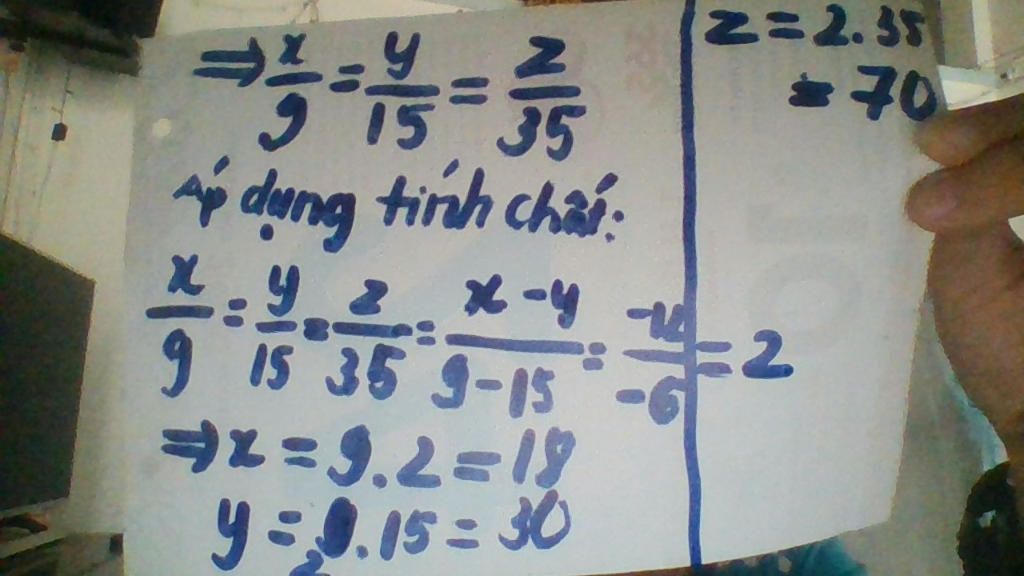 ⇒ x/9 = y/15 = z/35
Áp dụng tính chất:
x/9 = y/15 = z/35 = x - y/9 - 15 = -12/-6 = 2
⇒ x = 9.2 = 18
y = 2.15 = 30
z = 2.35
= 70